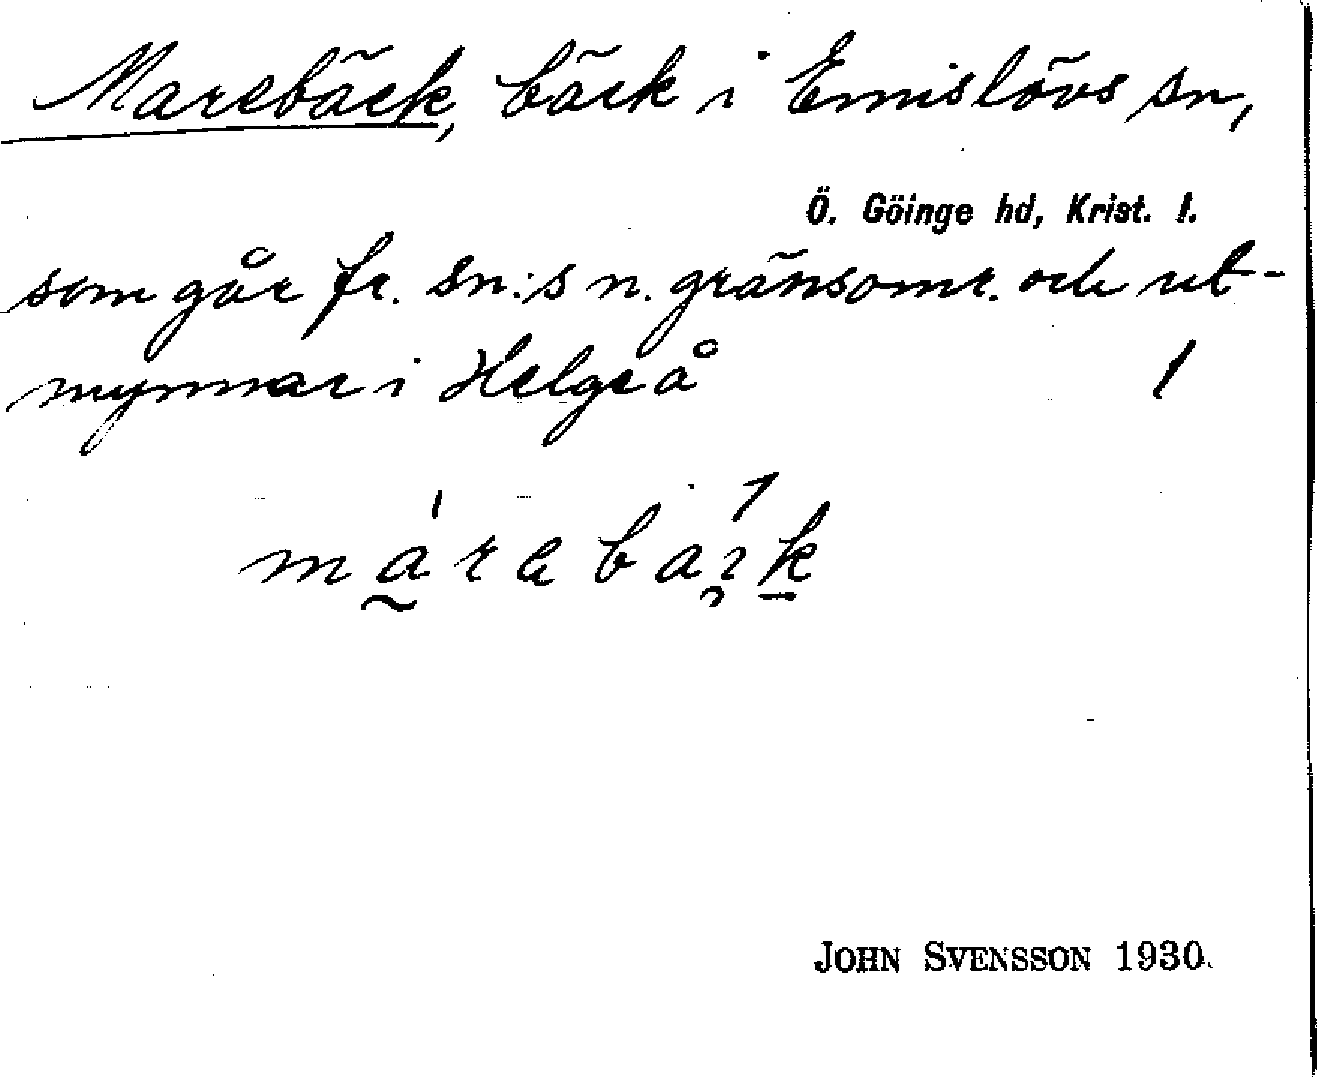 Marebäck, bäck i Emislövs sn,
Ö. Göinge hd, Krist. l.
som går fr. sn:s n. gränsomr. och ut-
mynnar i Helgeå 1
JOHN SVENSSON 1930.